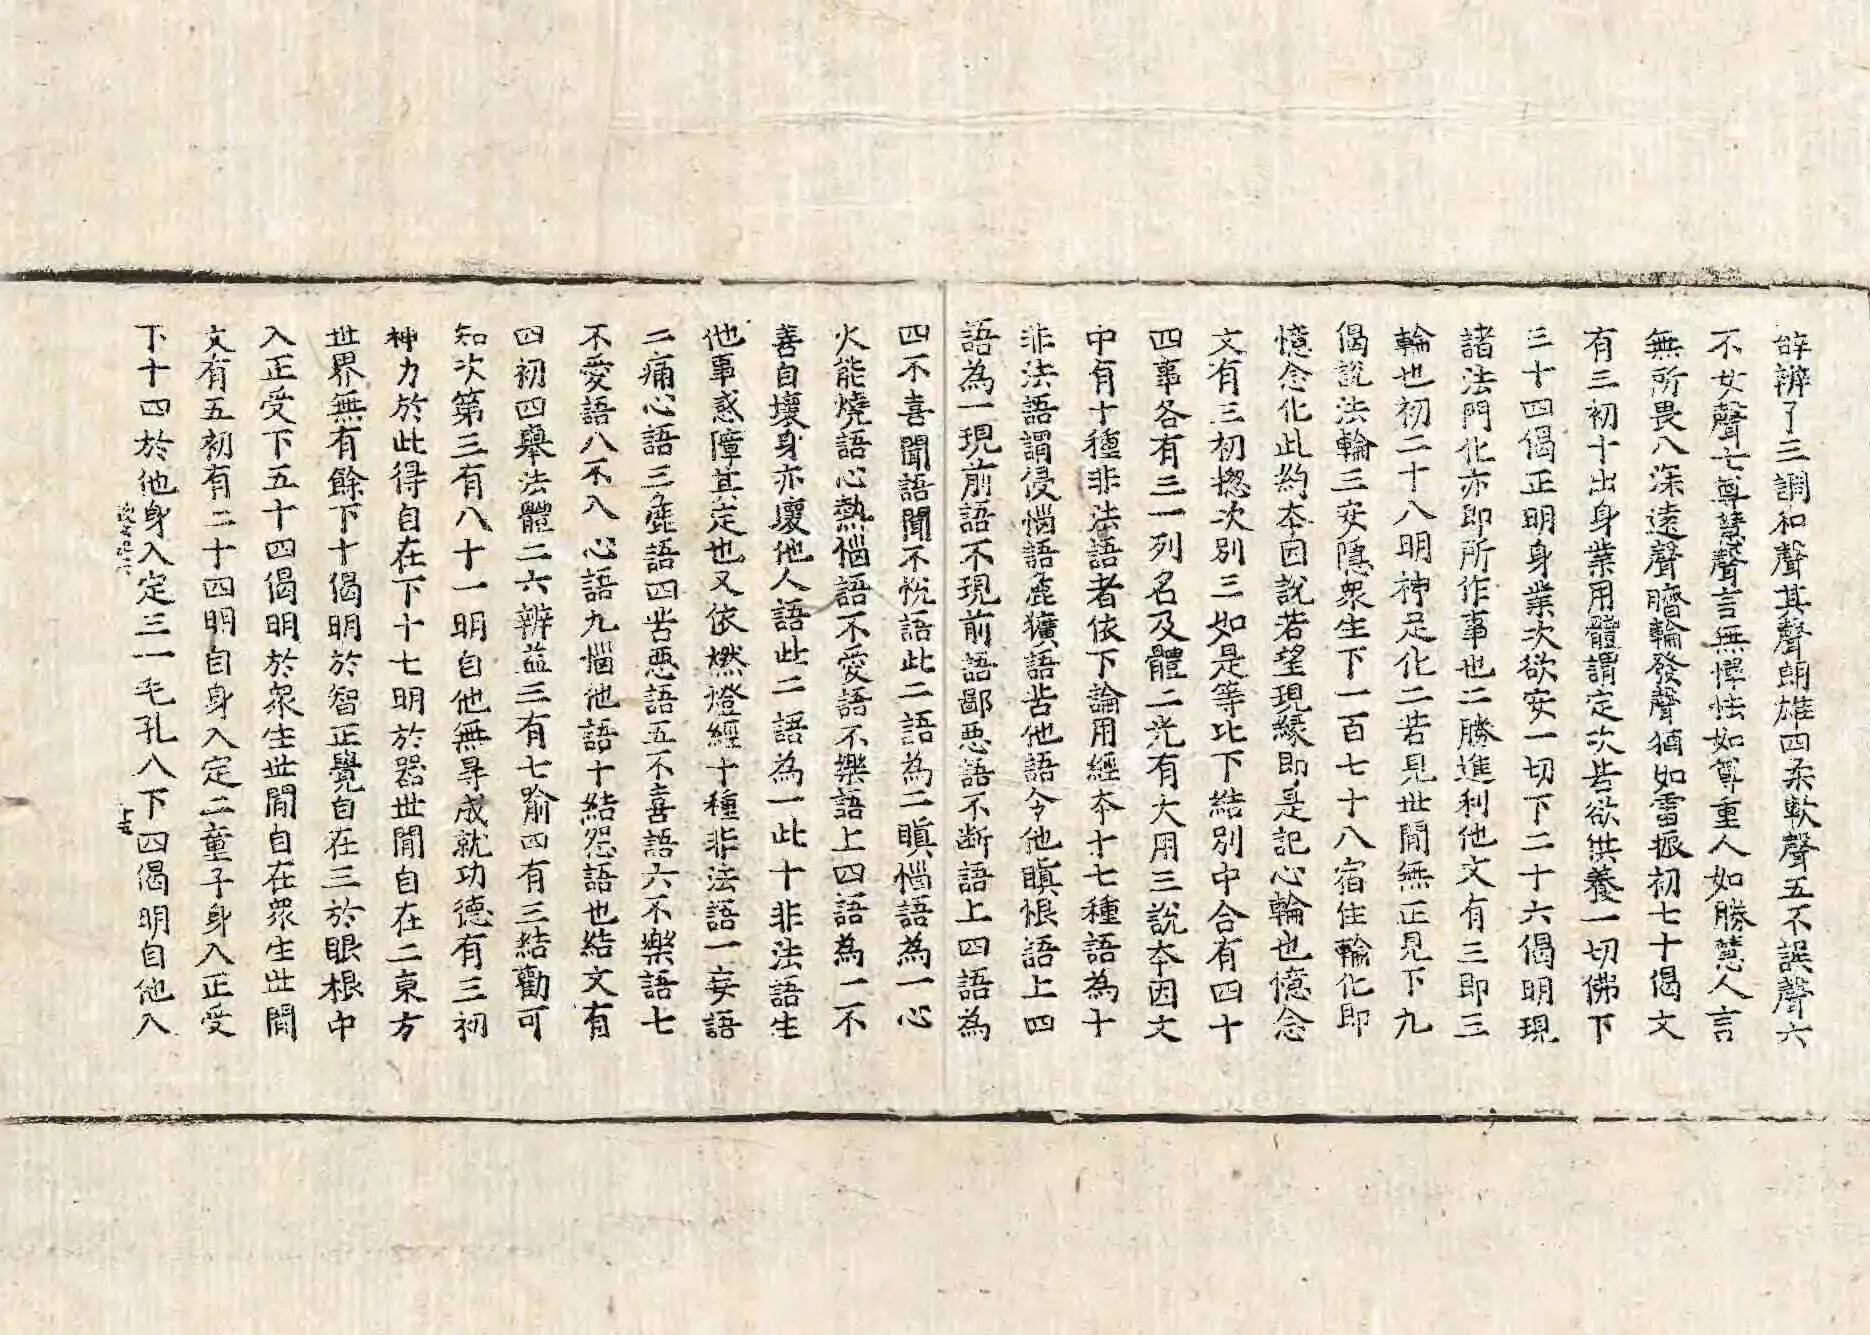 辞辨了三調和聲其聲朗雄四柔軟聲五不誤聲六
不女聲七尊慧聲言無憚怯如尊重人如勝慧人言
無所畏八深遠聲臍輪發聲猶如雷振初七十偈文
有三初十出身業用體謂定次皆欲供養一切佛下
三十四偈正明身業次欲安一切下二十六偈明現
諸法門化亦即所作事也二勝進利他文有三即三
輪也初二十八明神足化二若見世間無正見下九
偈説法輪三安隱衆生下一百七十八宿住輪化即
憶念化此約本因説若望現緣即是記心輪也憶念
文有三初揔次別三如是等比下結別中合有四十
四事各有三一列名及體二光有大用三説本因文
中有十種非法語者依下論用經本十七種語為十
非法語謂侵惱語麁獷語苦他語令他瞋恨語上四
語為一現前語不現前語鄙惡語不断語上四語為
四不喜聞語聞不悦語此二語為二瞋惱語為一心
火能燒語心熱惱語不愛語不樂語上四語為一不
善自壞身亦壞他人語此二語為一此十非法語生
他事惑障其定也又依燃燈經十種非法語一妄語
二痛心語三麁語四苦惡語五不喜語六不樂語七
不愛語八不入心語九惱他語十結怨語也結文有
四初四舉法體二六辨益三有七喻四有三結勸可
知次第三有八十一明自他無㝵成就功德有三初
神力於此得自在下十七明於器世間自在二東方
世界無有餘下十偈明於智正覺自在三於眼根中
入正受下五十四偈明於衆生世間自在衆生世間
文有五初有二十四明自身入定二童子身入正受
下十四於他身入定三一毛孔八下四偈明自他入